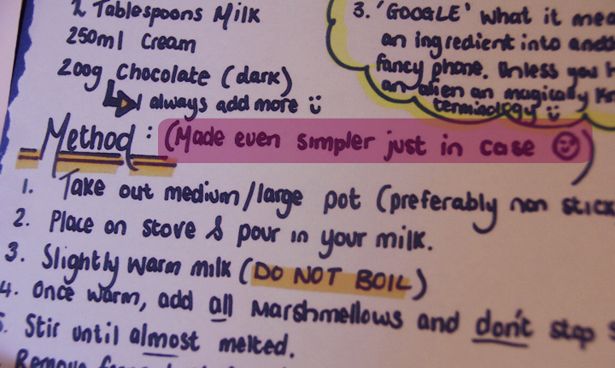 2 Tablespoons Milk
250ml Cream
200g Chocolate (dark)
I always add more ü
3. 'GOOGLE' what it
an ingredient into
fancy phone. Unless you
an alien an magically
terminology ü
Method: (Made even simpler just in case ☺)
1. Take out medium/large pot (preferably non stick
2. Place on stove & pour in your milk.
3. Slightly warm milk (DO NOT BOIL)
4. Once warm, add all Marshmellows and don't stop
5. Stir until almost melted.
Remove